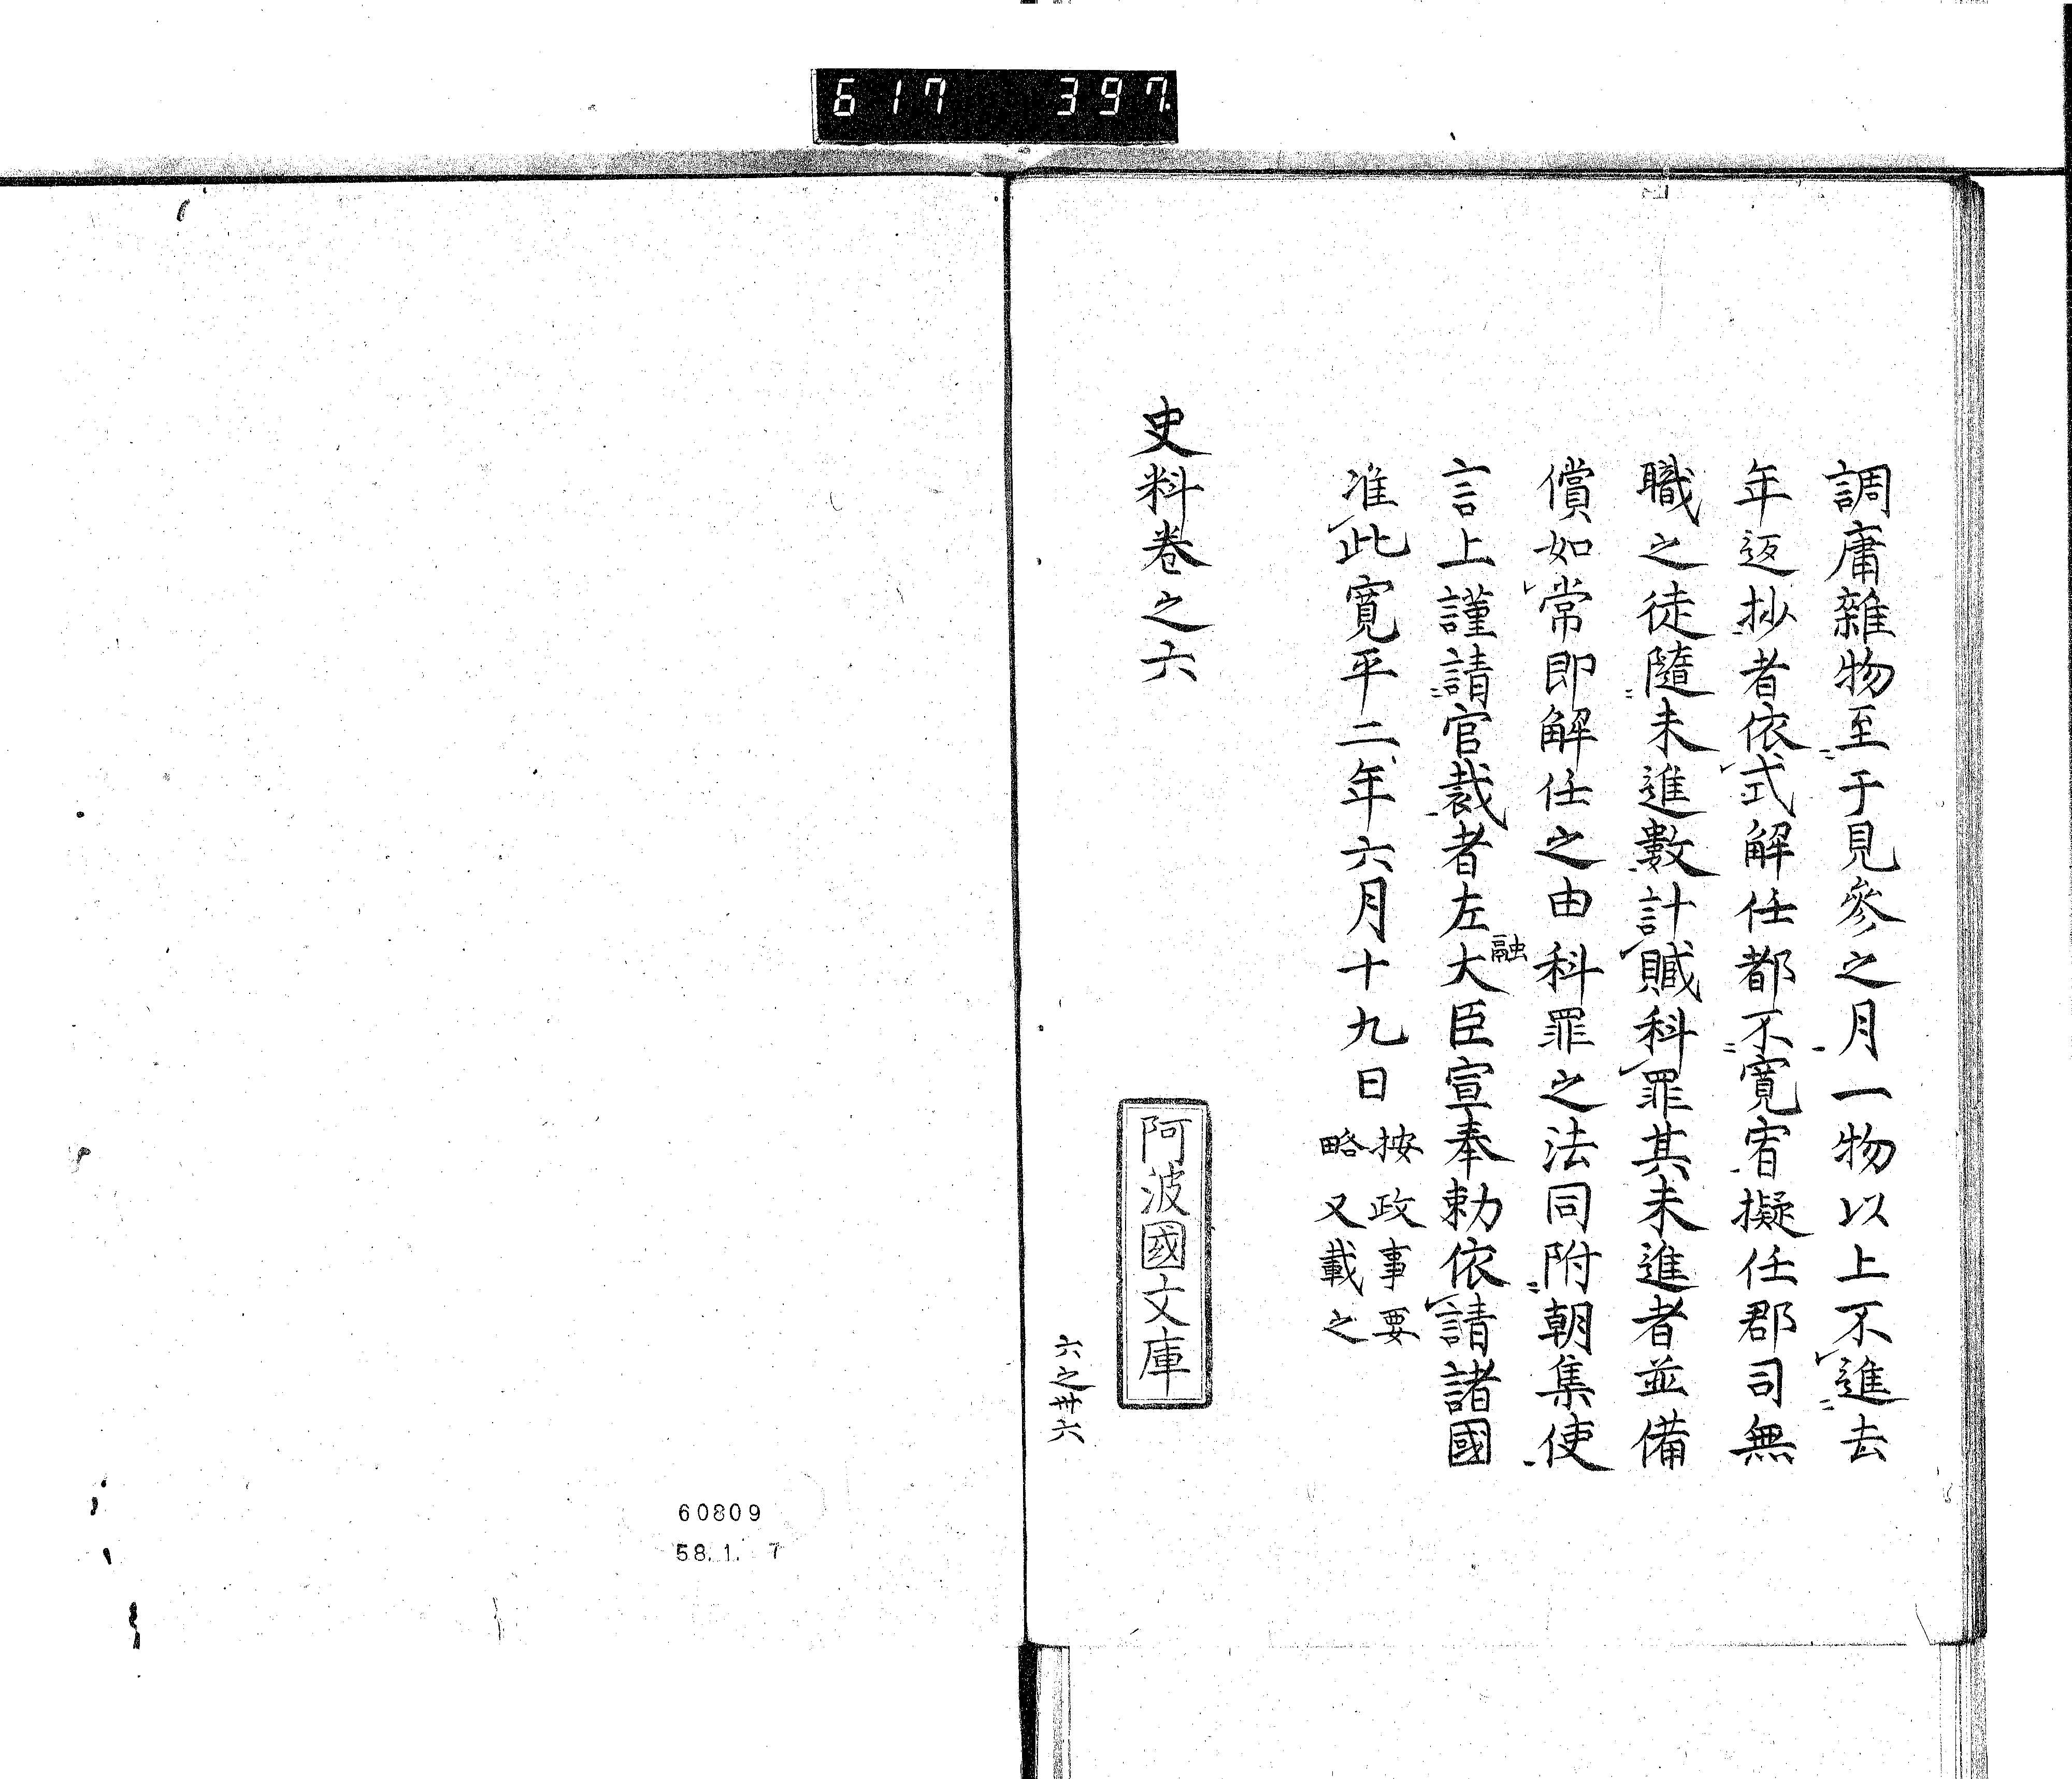 617 397.
調庸雜物至于見參之月一物以上不進去
年返抄者依式解任都不寬宥擬任郡司無
職之徒隨未進數計贓科罪其未進者並備
償如常即解任之由科罪之法同附朝集使
言上謹請官裁者左大臣宣奉勅依請諸國
融
准此寬平二年六月十九日
按政事要
略又載之
史料卷之六
阿波國文庫
六之卅六
60809
58.1.7